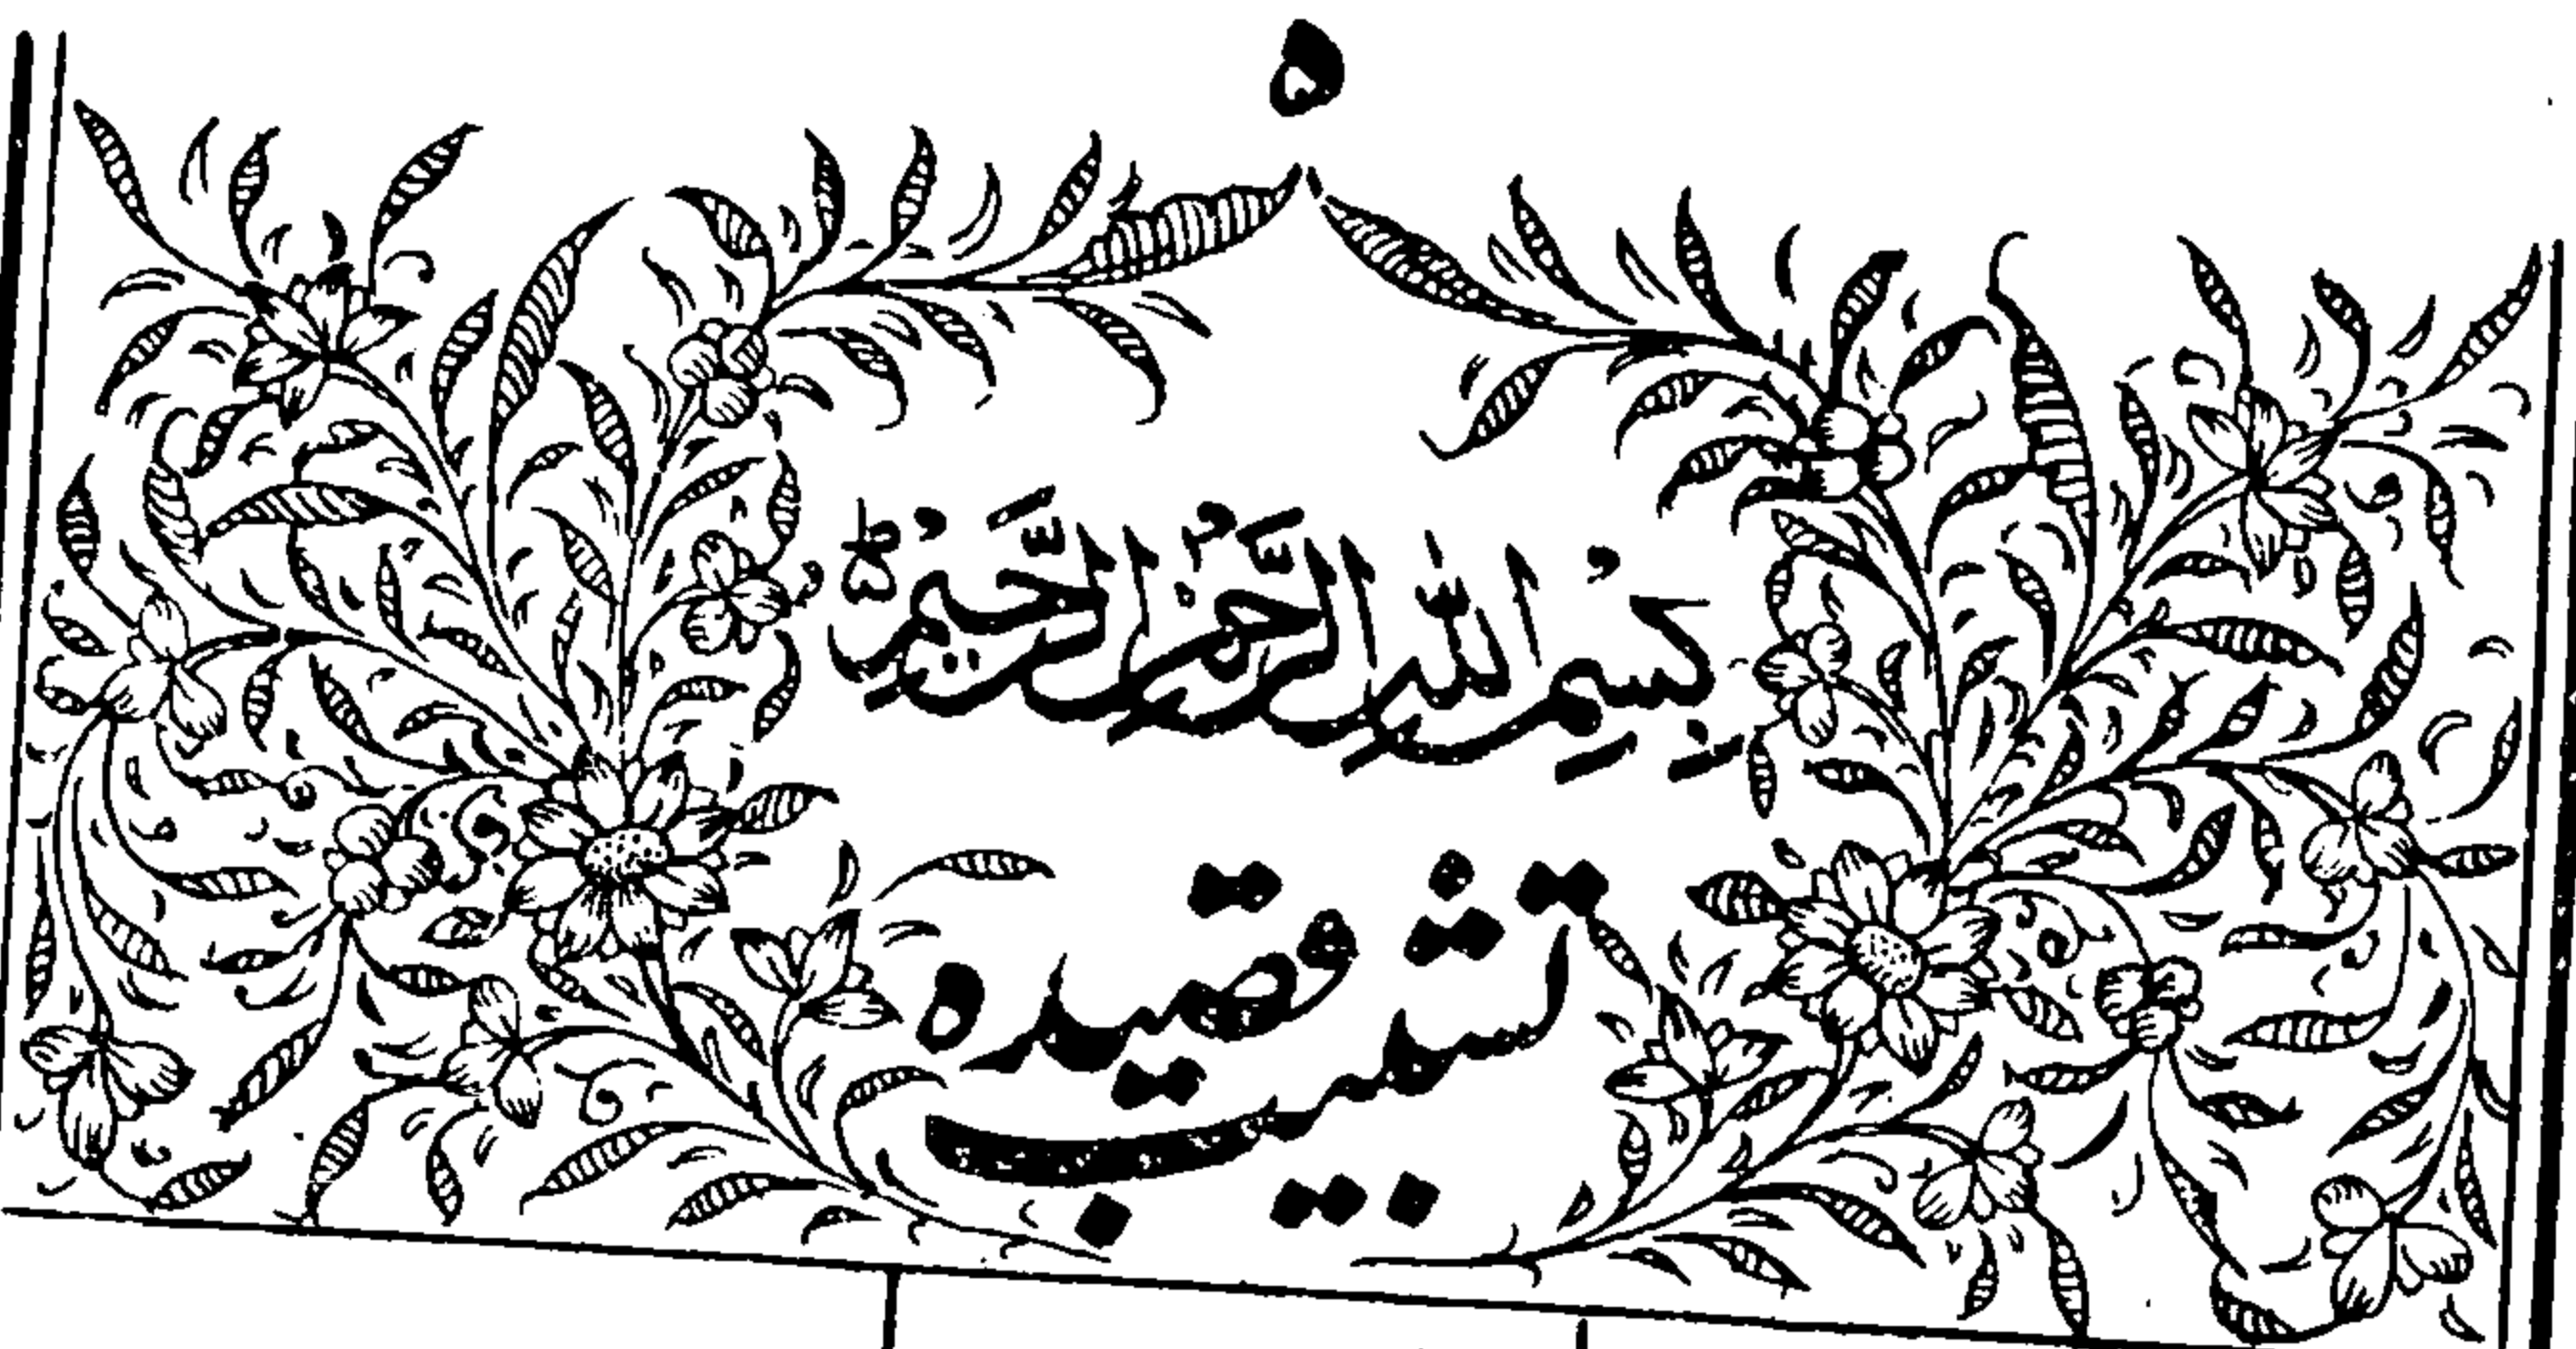 ۵
بِسْمِ اللّٰهِ الرَّحْمٰنِ الرَّحِيْمِ
تشبیب قصیدہ